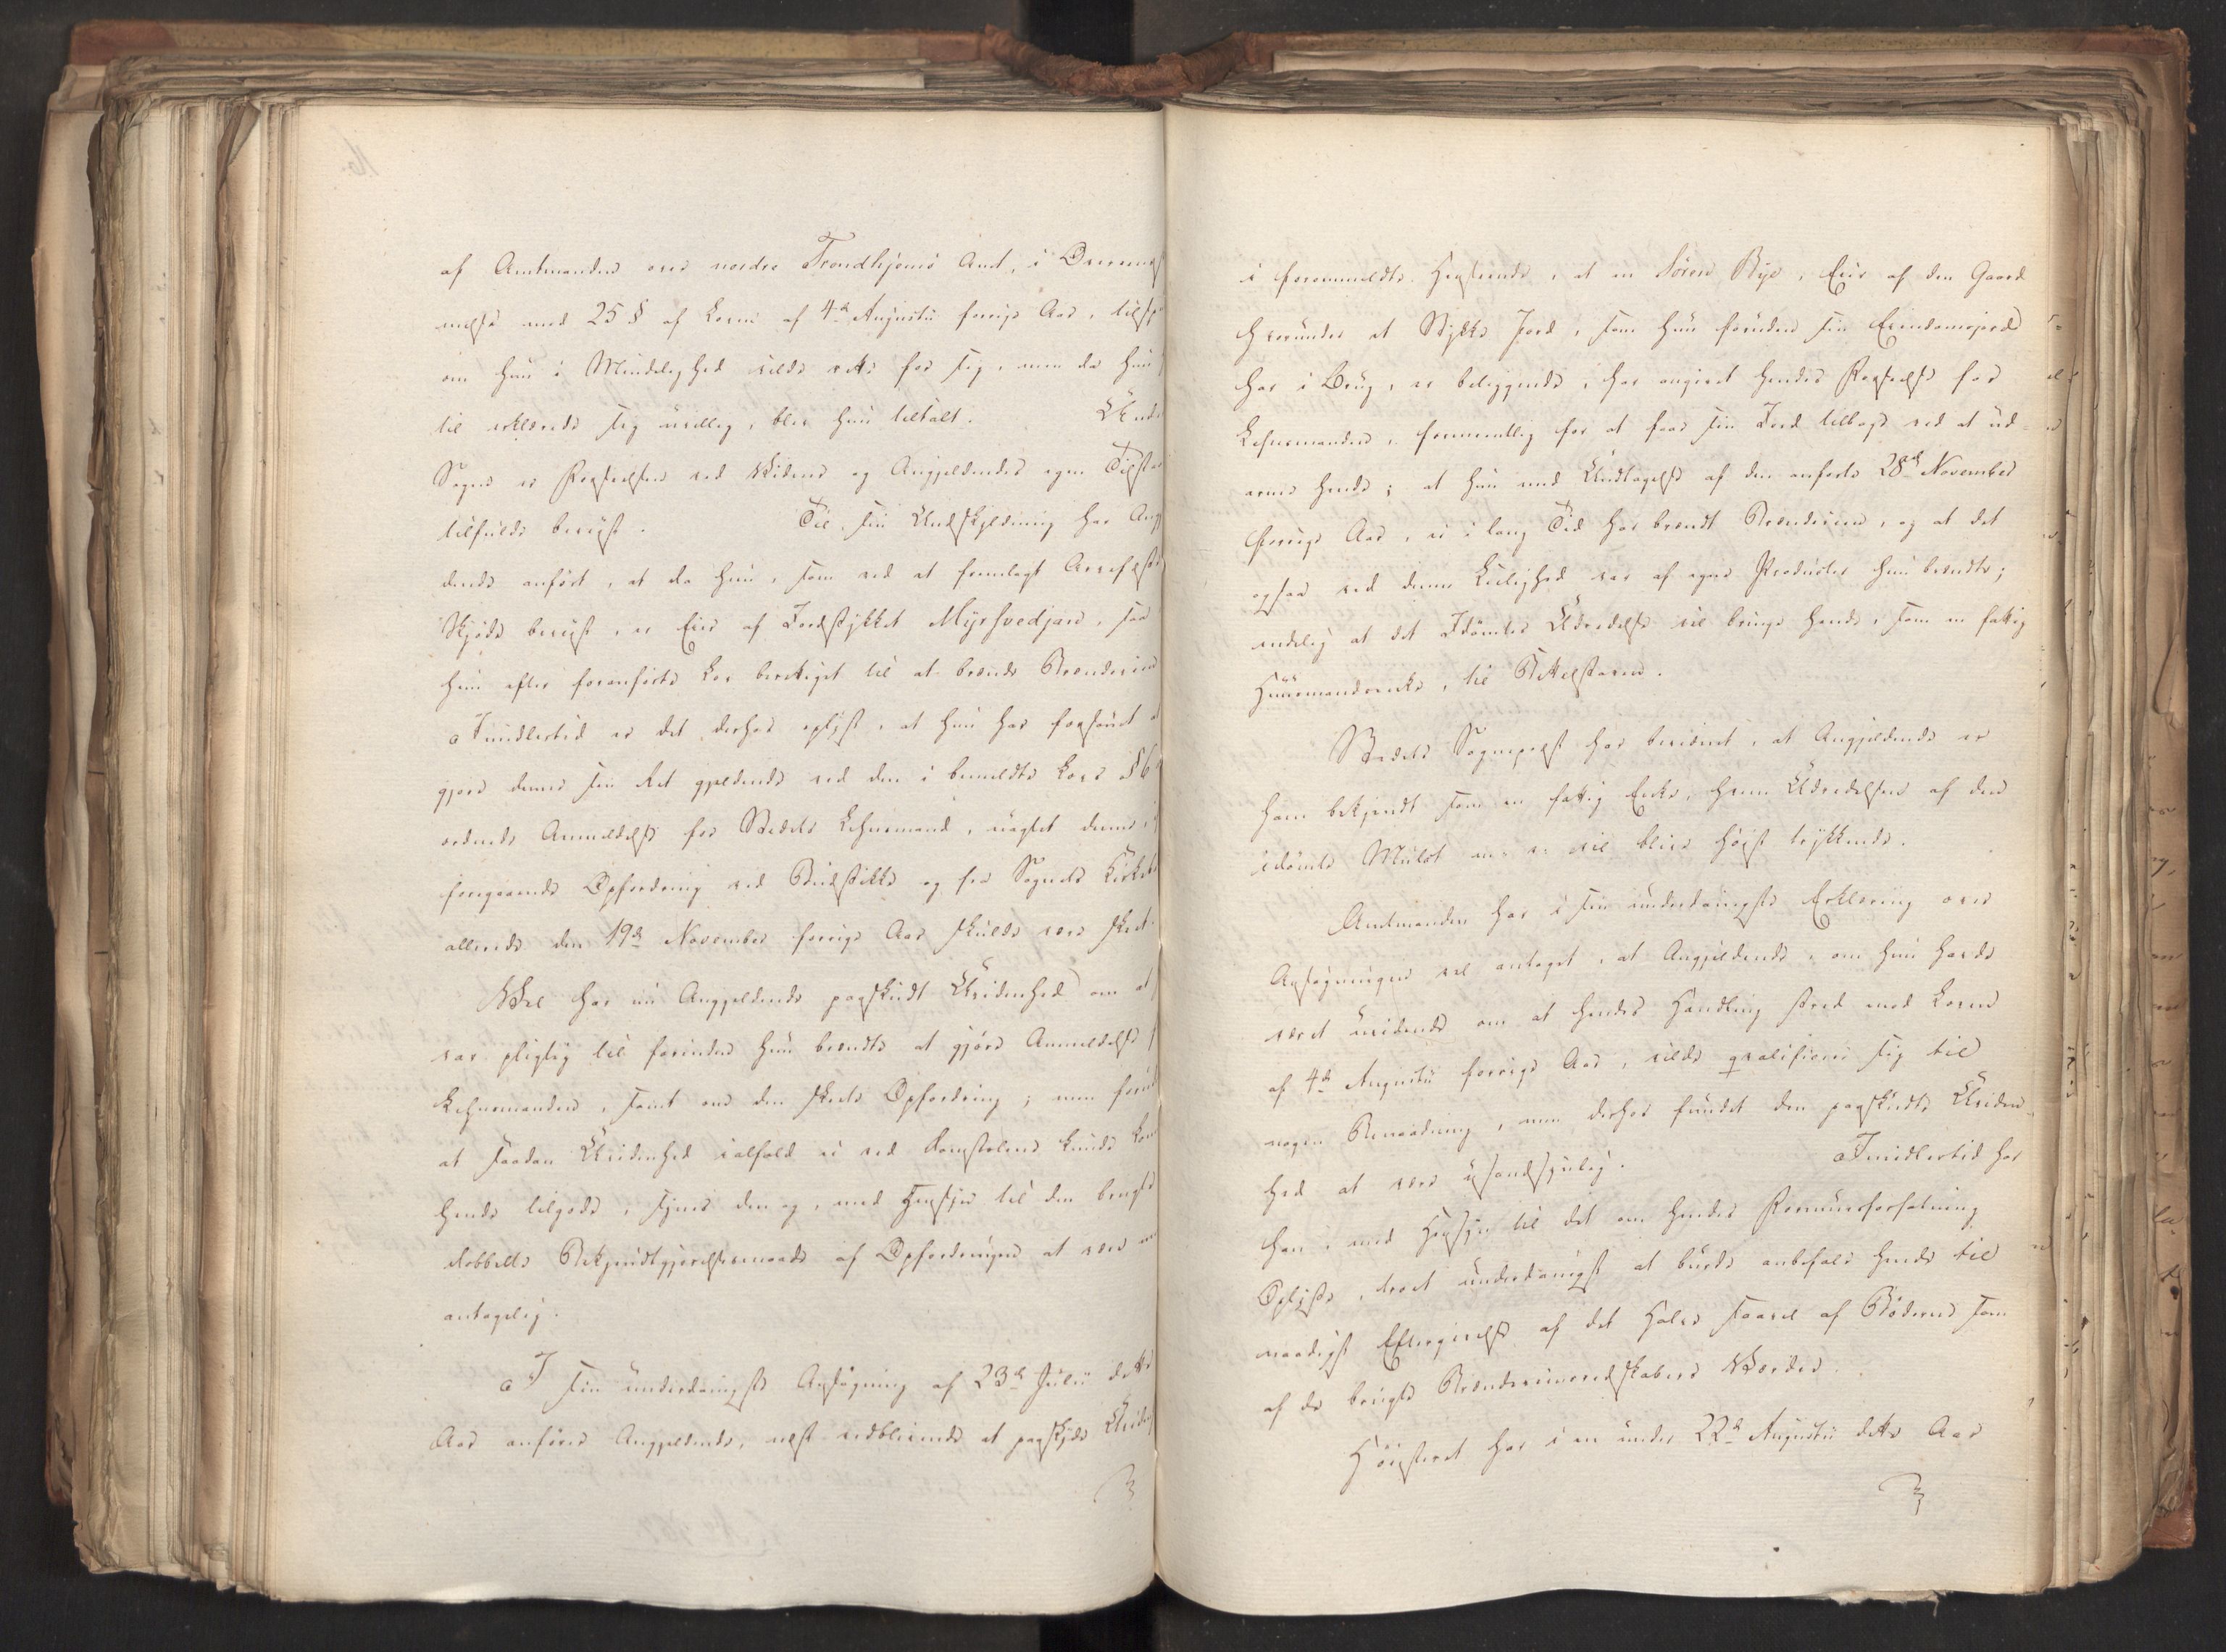 af Amtmanden over nordre Trondhjems Amt, i Overeens
melse med 25 § af Loven af 4de Augusti forrige Aar, tilspu
om hun i Mindelighed vilde vedtage for sig, men da hun
til erklærede sig uvillig, blev hun tiltalt. Under
Sagen er Forseelsen ved Vidner og Angjeldendes egen Tilstaa
tilfulde beviist. Til sin Undskyldning har Ang
dende anført, at da hun, som ved et fremlagt
Skjøde beviist, er Eier af Jordstykket Myrsvedjan, saa
hun efter foranførte Lov berettiget til at brænde Brændeviin
Imidlertid er det derhos oplyst, at hun har forsømt at
gjøre denne sin Ret gjeldende ved den i bemeldte Lovs § 6
ordnede Anmeldelse for Stedets Lehnsmand, uagtet denne
foregaaende Opfordring ved Budstikke og fra Sognets Kirke
allerede den 19de November forrige Aar skulde være skeet.
Vel har nu Angjeldende paaskudt Uvidenhed om at
var pligtig til forinden hun brændte at gjøre Anmeldelse f
Lehnsmanden, samt om den skeete Opfordring; men foruden
at saadan Uvidenhed ialfald ei ved Domstolene kunde kom
hende tilgode, synes den og, med Hensyn til den brugte
dobbelte Bekjendtgjørelsesmaade af Opfordringen at være u
antagelig.
I sin underdanigste Ansøgning af 23de Julii dette
Aar anfører Angjeldende, næst vedblivende at paaskyde Uviden
i foranmeldte Henseende, at en Sören Bye, Eier af den Gaard
hvorunder et Stykke Jord, som hun foruden sin Eiendomsjord
har i Brug, er beliggende, har angivet hendes Forseelse for
Lehnsmanden, formeentlig for at faae sin Jord tilbage ved at ud-
arme hende; at hun med Undtagelse af den anførte 28de November
forrige Aar, ei i lang Tid har brændt Brændeviin, og at det
ogsaa ved denne Leilighed var af egne Producter hun brændte;
endelig at det Idømtes Udredelse vil bringe hende, som en fattig
Huusmandsenke, til Bettelstaven.
Stedets Sognepræst har bevidnet, at Angjeldende er
ham bekjendt som en fattig Enke, hvem Udredelsen af den
idømte Mulct m: v: vil blive høist trykkende.
Amtmanden har i sin underdanigste Erklæring over
Ansøgningen vel antaget, at Angjeldende, om hun havde
været uvidende om at hendes Handling stred mod Loven
af 4de Augusti forrige Aar, vilde qvalificere sig til
nogen Benaadning, men derhos fundet den paaskudte Uviden-
hed at være usandsynlig. Imidlertid har
han, med Hensyn til det om hendes Formuesforfatning
Oplyste, troet underdanigst at burde anbefale hende til
naadigst Eftergivelse af det Halve saavel af Bøderne som
af de brugte Brændeviinsredskabers Værdie.
Høiesteret har i en under 22de Augusti dette Aar